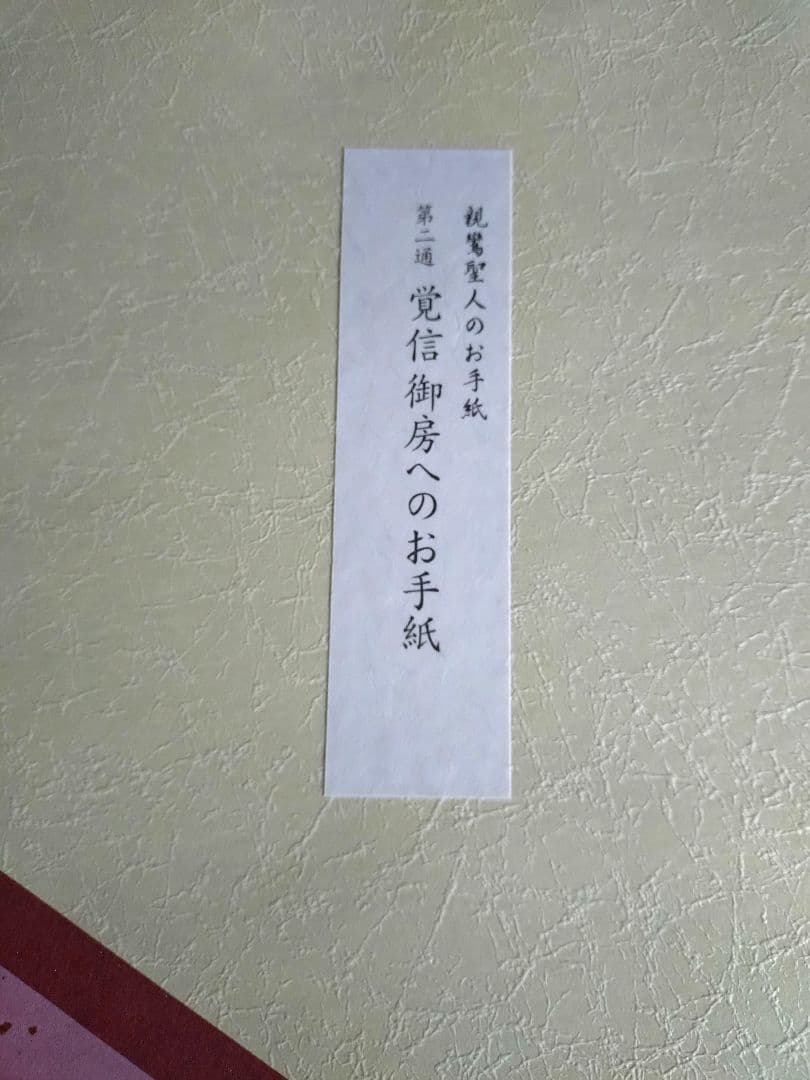 親鸞聖人のお手紙
第二通 覚信御房へのお手紙